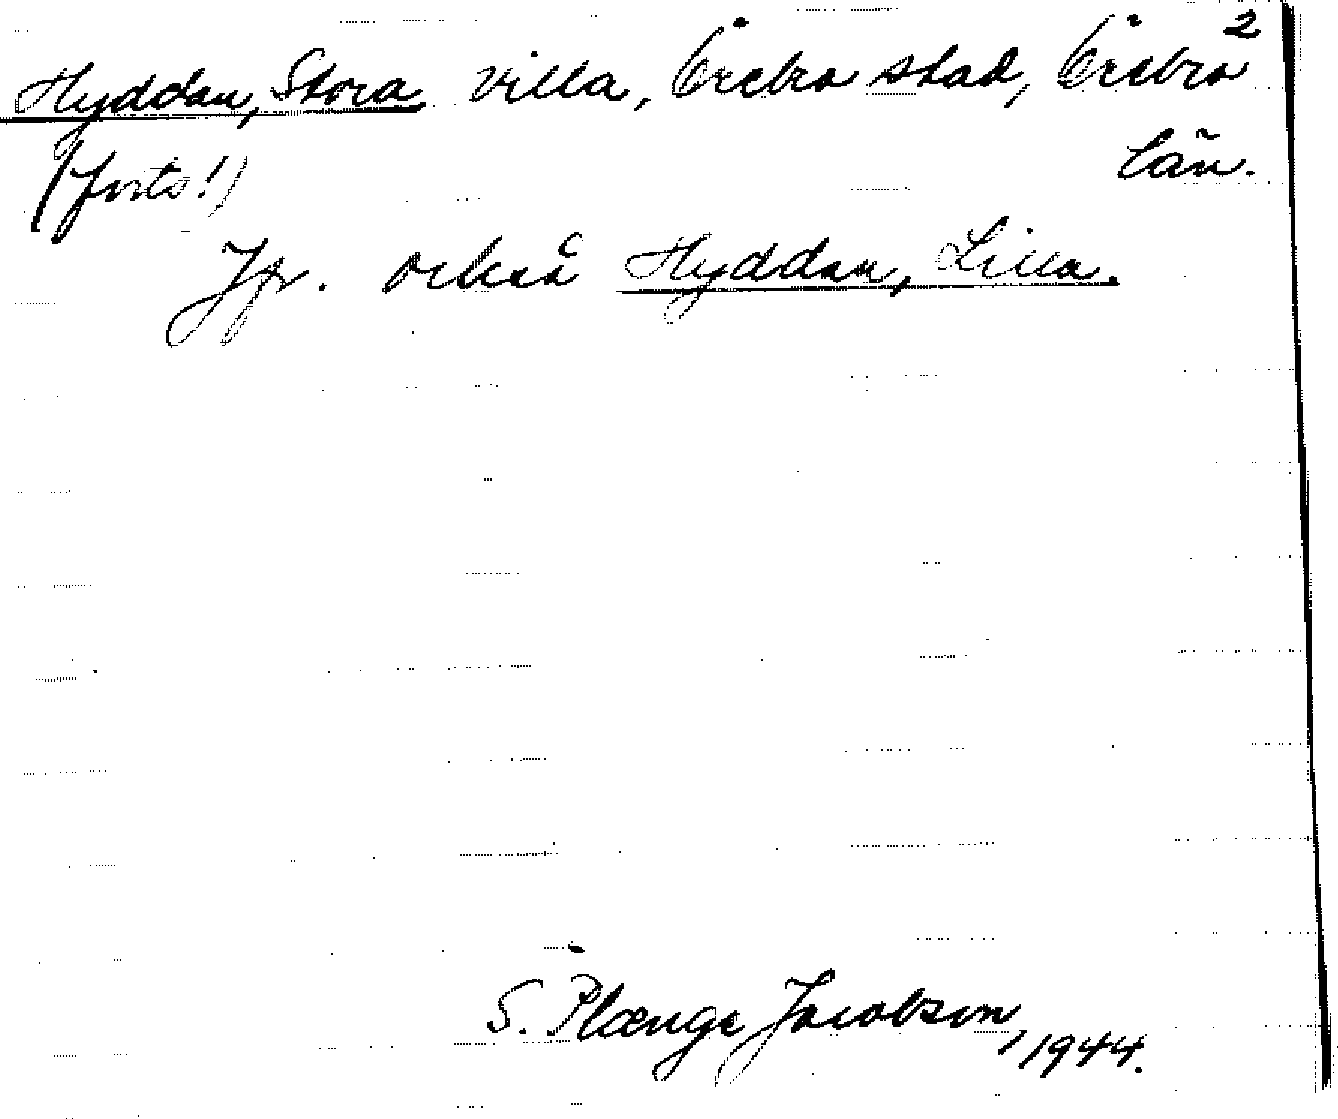 2
Hyddan, Stora villa, Örebro stad, Örebro
län.
(forts!)
Jfr. också Hyddan, Lilla.
S. Plænge Jacobson, 1944.